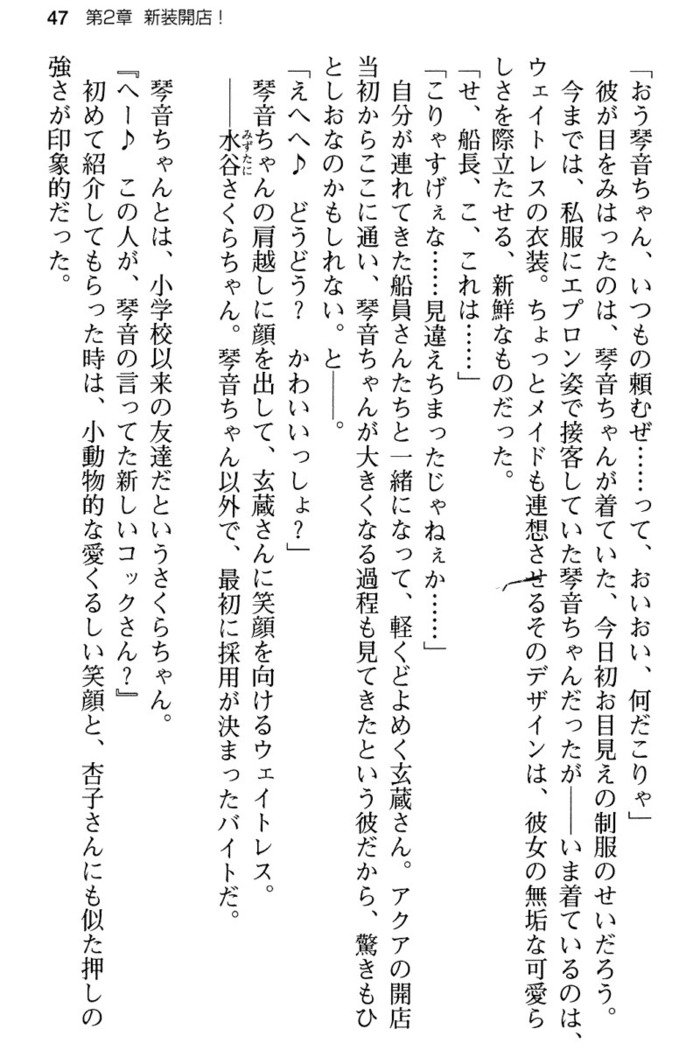 47 第2章 新装開店！
「おう琴音ちゃん、いつもの頼むぜ……って、おいおい、何だこりゃ」
彼が目をみはったのは、琴音ちゃんが着ていた、今日初お目見えの制服のせいだろう。
今までは、私服にエプロン姿で接客していた琴音ちゃんだったが――いま着ているのは、
ウェイトレスの衣装。ちょっとメイドも連想させるそのデザインは、彼女の無垢な可愛ら
しさを際立たせる、新鮮なものだった。
「せ、船長、こ、これは……」
「こりゃすげぇな……見違えちまったじゃねぇか……」
自分が連れてきた船員さんたちと一緒になって、軽くどよめく玄蔵さん。アクアの開店
当初からここに通い、琴音ちゃんが大きくなる過程も見てきたという彼だから、驚きもひ
としおなのかもしれない。と――。
「えへへ♪　どうどう？　かわいいっしょ？」
琴音ちゃんの肩越しに顔を出して、玄蔵さんに笑顔を向けるウェイトレス。
――水谷さくらちゃん。琴音ちゃん以外で、最初に採用が決まったバイトだ。
みずたに
琴音ちゃんとは、小学校以来の友達だというさくらちゃん。
『へー♪　この人が、琴音の言ってた新しいコックさん？』
初めて紹介してもらった時は、小動物的な愛くるしい笑顔と、杏子さんにも似た押しの
強さが印象的だった。